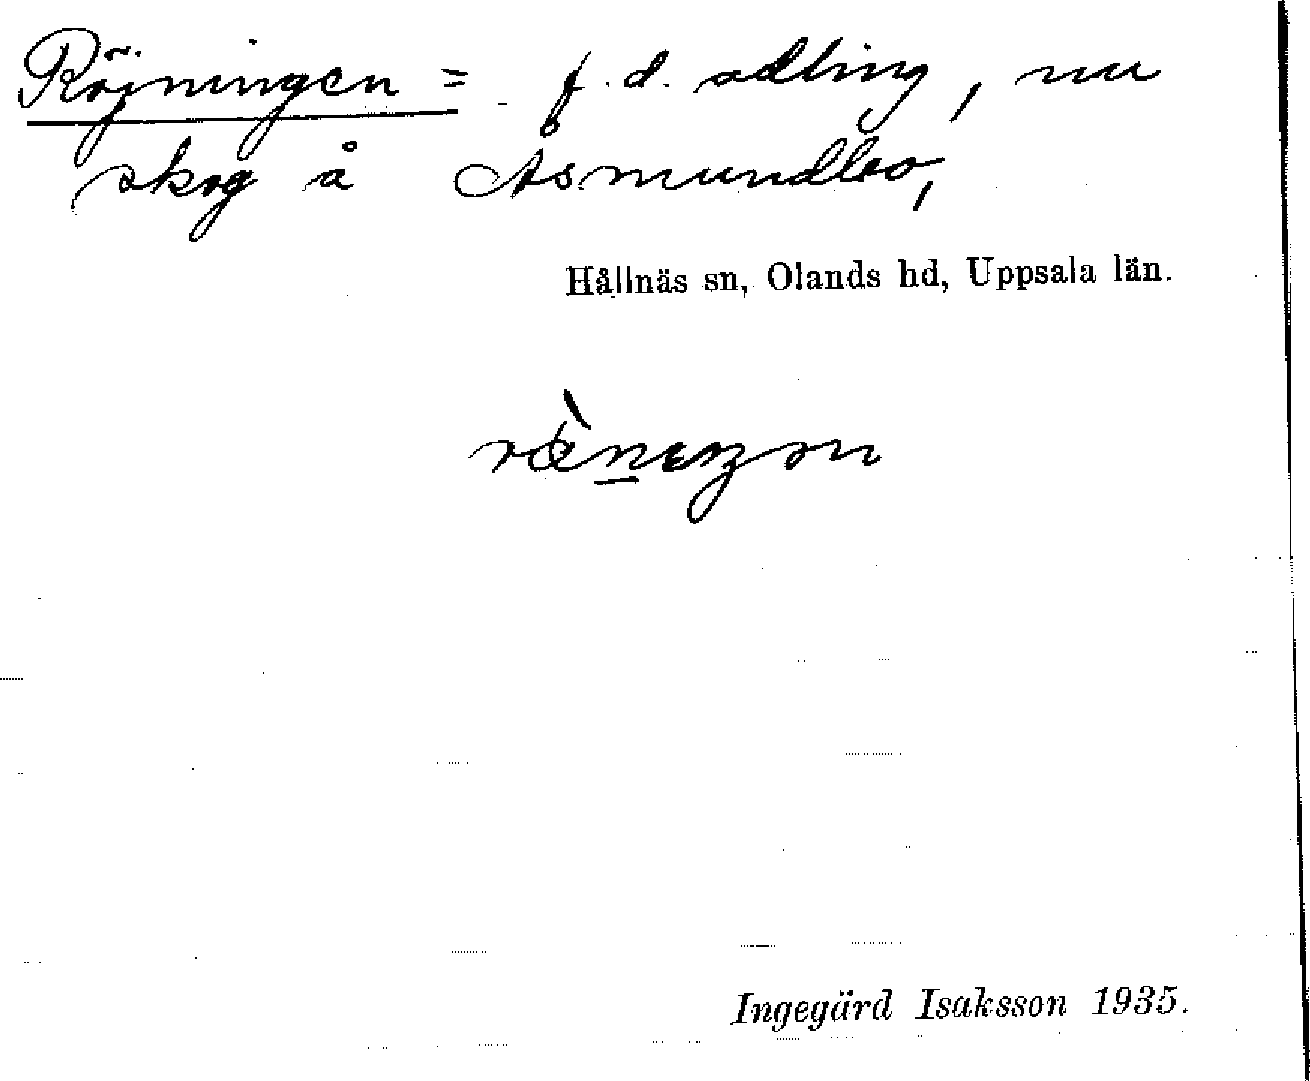 Röjningen = f.d. odling, nu
skog å Åsmundbo,
Hållnäs sn, Olands hd, Uppsala län.
Ingegärd Isaksson 1935.